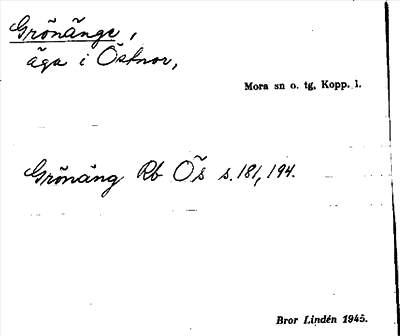 Grönänge,
äga i Östnor,
Mora sn o. tg, Kopp. l.
Grönäng Rb Ös s. 181, 194.
Bror Lindén 1945.